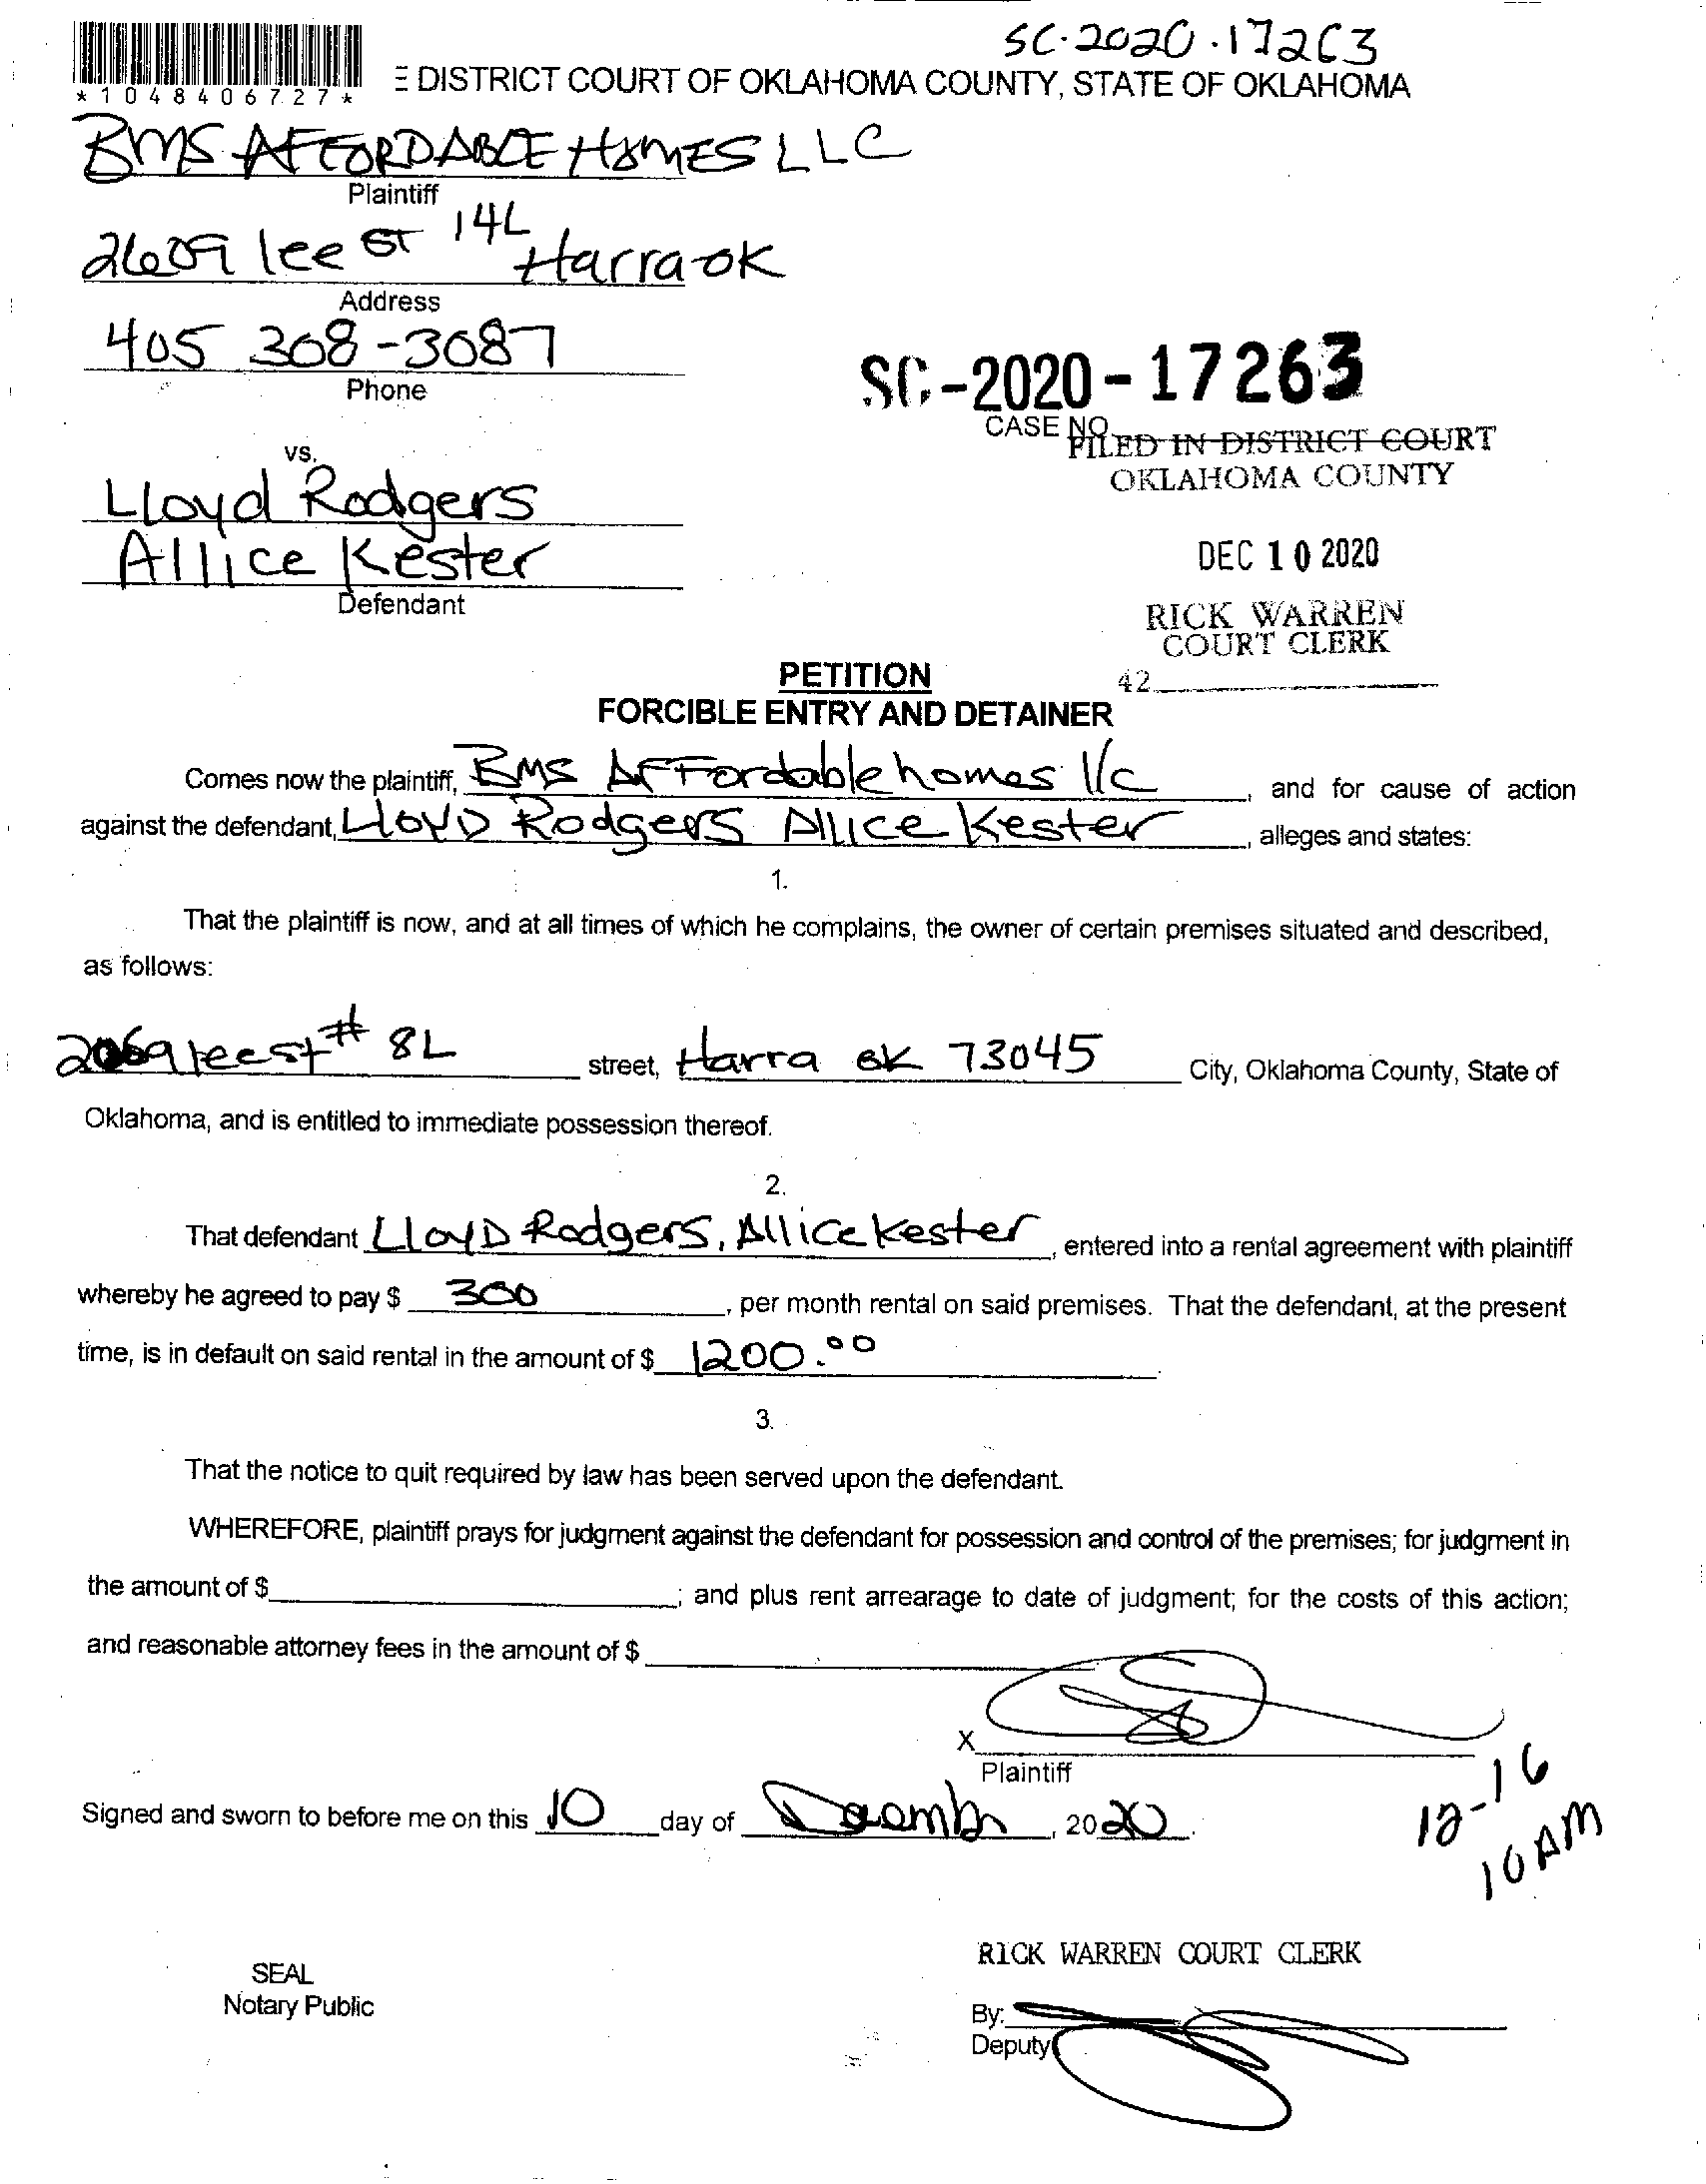 SC-2020-17263
E DISTRICT COURT OF OKLAHOMA COUNTY, STATE OF OKLAHOMA
*1048406727*
BMS AFFORDABLE HOMES LLC
Plaintiff
2609 lee ST 14L Harra OK
Address
405 308-3087
Phone
SC-2020-17263
CASE NO.
FILED IN DISTRICT COURT
OKLAHOMA COUNTY
vs.
Lloyd Rodgers
Allice Kester
Defendant
DEC 10 2020
RICK WARREN
COURT CLERK
42
PETITION
FORCIBLE ENTRY AND DETAINER
Comes now the plaintiff, BMS AFFordable homes llc, and for cause of action
against the defendant, LLOYD Rodgers Allice Kester, alleges and states:
1.
That the plaintiff is now, and at all times of which he complains, the owner of certain premises situated and described,
as follows:
lee st # 8L street, Harra OK 73045 City, Oklahoma County, State of
Oklahoma, and is entitled to immediate possession thereof.
2.
That defendant LLOYD Rodgers, Allice Kester, entered into a rental agreement with plaintiff
whereby he agreed to pay $ 300, per month rental on said premises. That the defendant, at the present
time, is in default on said rental in the amount of $ 1200.00.
3.
That the notice to quit required by law has been served upon the defendant.
WHEREFORE, plaintiff prays for judgment against the defendant for possession and control of the premises; for judgment in
the amount of $ ; and plus rent arrearage to date of judgment; for the costs of this action;
and reasonable attorney fees in the amount of $
X
Plaintiff
Signed and sworn to before me on this 10 day of December, 2020.
12-16
10 AM
RICK WARREN COURT CLERK
SEAL
Notary Public
By:
Deputy